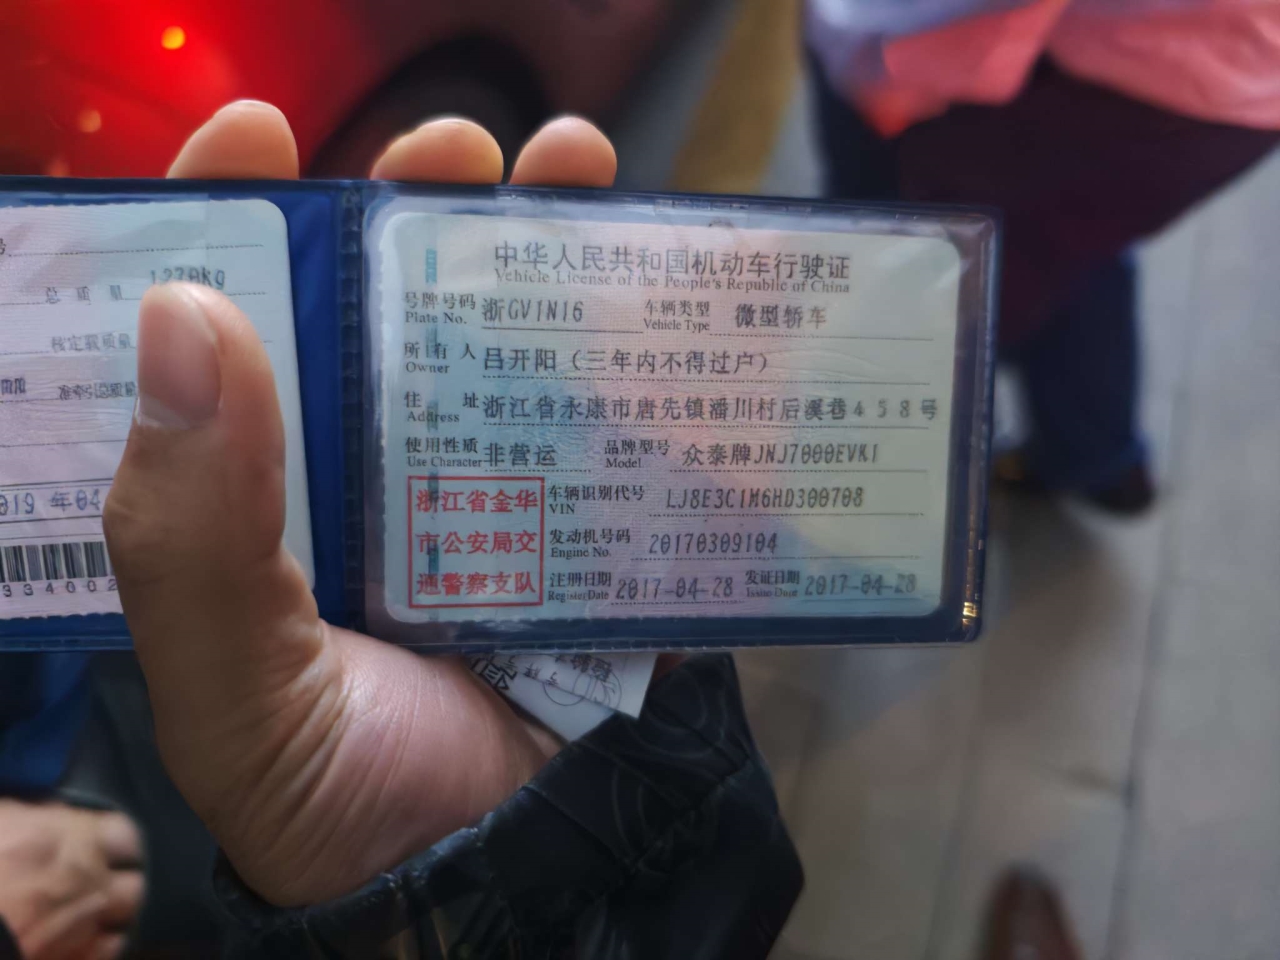 号
总质量 1270kg
核定载质量
准牵引总质量
019 年04
334002
中华人民共和国机动车行驶证
Vehicle License of the People's Republic of China
号牌号码 浙GV1N16 车辆类型 微型轿车
Plate No. Vehicle Type
所有人 吕开阳（三年内不得过户）
Owner
住址 浙江省永康市唐先镇潘川村后溪巷458号
Address
使用性质 非营运 品牌型号 众泰牌JNJ7000EVK1
Use Character Model
浙江省金华
市公安局交
通警察支队
车辆识别代号 LJ8E3C1M6HD300708
VIN
发动机号码 20170309104
Engine No.
注册日期 2017-04-28 发证日期 2017-04-28
Register Date Issue Date